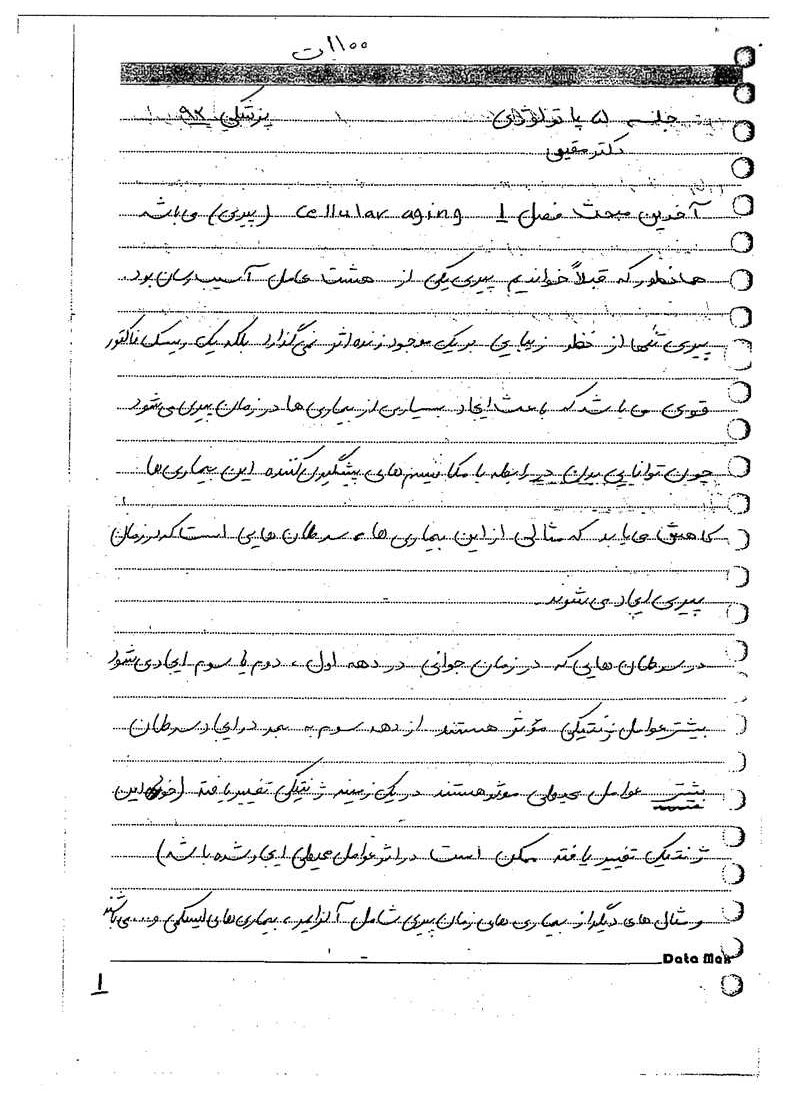 ۱۱۰۰ت
جلسه ۵ پاتولوژی پزشکی ۹۲
دکتر مقیمی
آخرین مبحث فصل 1 cellular aging (پیری) می باشد
همانطور که قبلاً خواندیم پیری یکی از هشت عامل آسیب رسان بود.
پیری تنها از خطر زیبایی بر یک موجود زنده اثر نمی گذارد بلکه یک ریسک فاکتور
قوی می باشد که باعث ایجاد بسیاری از بیماری ها در زمان پیری می شود
چون توانایی بدن در رابطه با مکانیسم های پیشگیری کننده این بیماری ها
کاهش می یابد که مثالی از این بیماری ها، سرطان هایی است که در زمان
پیری ایجاد می شوند.
در سرطان هایی که در زمان جوانی در دهه اول، دوم یا سوم ایجاد می شود
بیشتر عوامل ژنتیکی مؤثر هستند از دهه سوم به بعد در ایجاد سرطان
بیشتر عوامل محیطی موثر هستند در یک زمینه ژنتیکی تغییر یافته (خود این
ژنتیک تغییر یافته ممکن است در اثر عوامل محیطی ایجاد شده باشد)
و مثال های دیگر از بیماری های زمان پیری شامل آلزایمر، بیماری های ایسکمی و... می باشند
Data Max
1